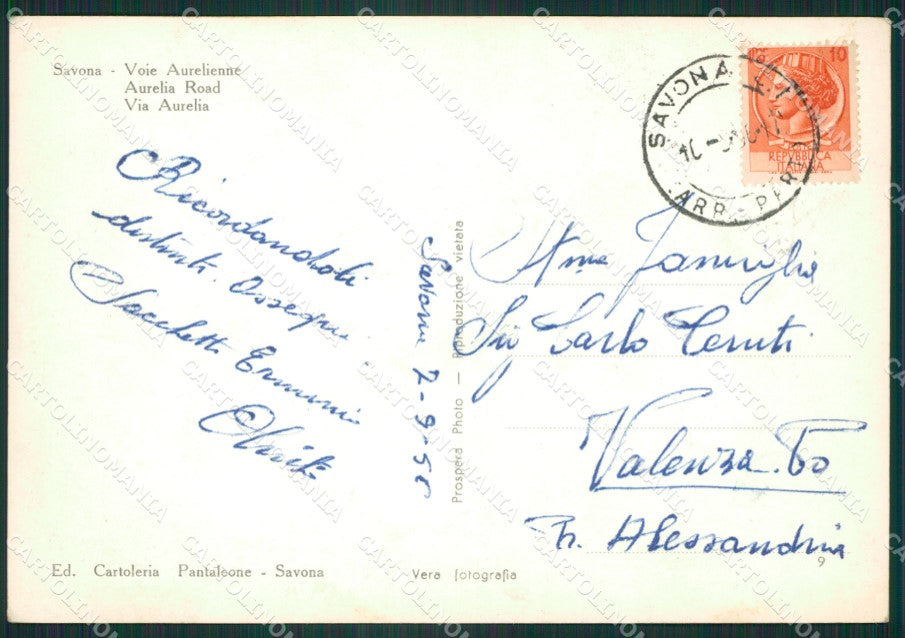 Savona - Voie Aurelienne
Aurelia Road
Via Aurelia
Ricordandoli
distinti ossequi
Sacchetti Ermini
Savona 2-9-56
Prospera Photo — Riproduzione vietata
SAVONA
ARR. PART.
10
REPVBBLICA
ITALIANA
Famiglia
Sig Carlo Ceruti
Valenza Po
Alessandria
9
Ed. Cartoleria Pantaleone - Savona
Vera fotografia
CARTOLINOMANIA